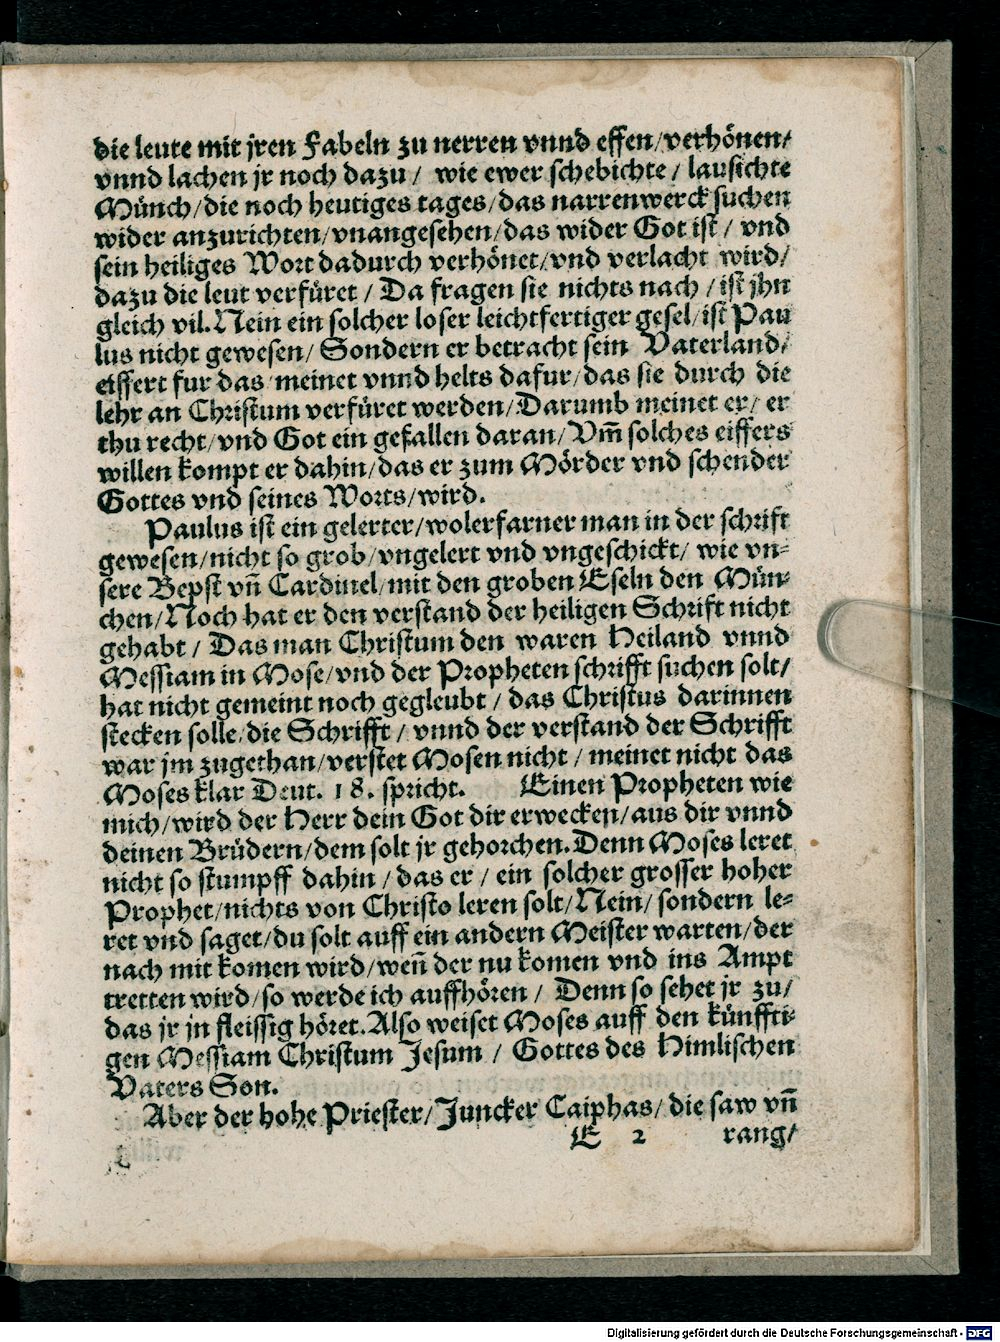 die leute mit jren Fabeln zu nerren vnnd effen/verhönen/
vnnd lachen jr noch dazu / wie ewer schebichte / lausichte
Münch/die noch heutiges tages/das narrenwerck suchen
wider anzurichten/vnangesehen/das wider Got ist / vnd
sein heiliges Wort dadurch verhönet/vnd verlacht wird/
dazu die leut verfüret / Da fragen sie nichts nach / ist jhn
gleich vil. Nein ein solcher loser leichtfertiger gesel/ist Pau
lus nicht gewesen/ Sondern er betracht sein Vaterland/
eiffert fur das/meinet vnnd helts dafur/das sie durch die
lehr an Christum verfüret werden/Darumb meinet er/ er
thu recht/vnd Got ein gefallen daran/Vm̃ solches eiffers
willen kompt er dahin/das er zum Mörder vnd schender
Gottes vnd seines Worts/wird.
Paulus ist ein gelerter/wolerfarner man in der schrift
gewesen/nicht so grob/vngelert vnd vngeschickt/ wie vn-
sere Bepst vñ Cardinel/mit den groben Eseln den Mün-
chen/Noch hat er den verstand der heiligen Schrift nicht
gehabt / Das man Christum den waren Heiland vnnd
Messiam in Mose/vnd der Propheten schrifft suchen solt/
hat nicht gemeint noch gegleubt / das Christus darinnen
stecken solle/die Schrifft / vnnd der verstand der Schrifft
war jm zugethan/verstet Mosen nicht / meinet nicht das
Moses klar Deut. 18. spricht. Einen Propheten wie
mich/wird der Herr dein Got dir erwecken/aus dir vnnd
deinen Brüdern/dem solt jr gehorchen. Denn Moses leret
nicht so stumpff dahin / das er / ein solcher grosser hoher
Prophet/nichts von Christo leren solt/Nein/ sondern le-
ret vnd saget/du solt auff ein andern Meister warten/der
nach mit komen wird/weñ der nu komen vnd ins Ampt
tretten wird/so werde ich auffhören / Denn so sehet jr zu/
das jr jn fleissig höret. Also weiset Moses auff den künffti-
gen Messiam Christum Jesum / Gottes des Himlischen
Vaters Son.
Aber der hohe Priester/Juncker Caiphas/ die saw vñ
E 2 rang/
Digitalisierung gefördert durch die Deutsche Forschungsgemeinschaft - DFG